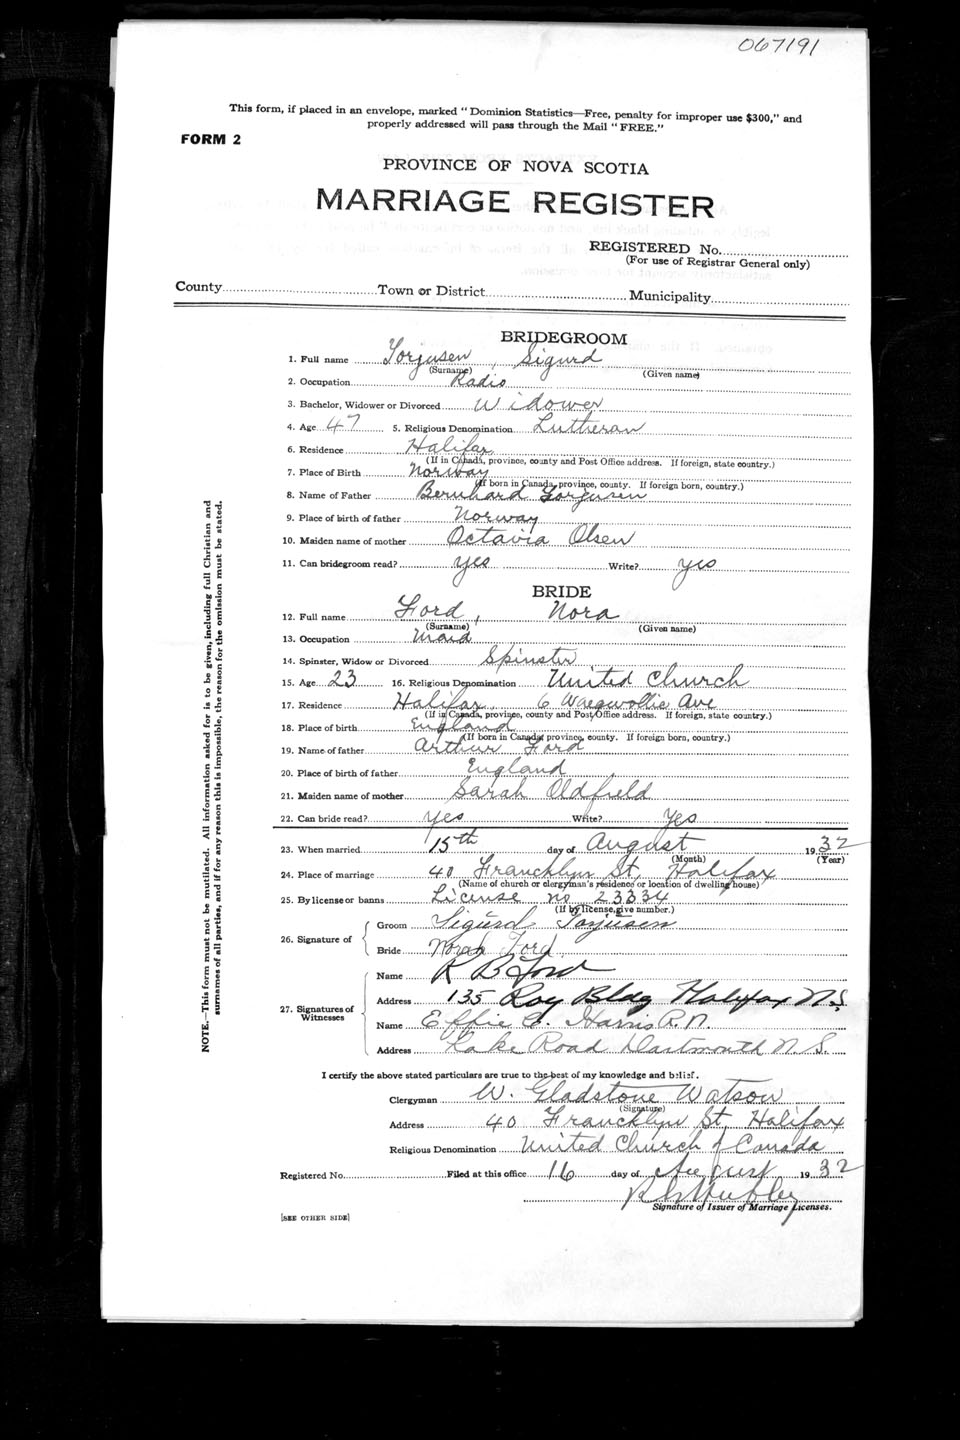 067191
This form, if placed in an envelope, marked "Dominion Statistics—Free, penalty for improper use $300," and
properly addressed will pass through the Mail "FREE."
FORM 2
PROVINCE OF NOVA SCOTIA
MARRIAGE REGISTER
REGISTERED No.
(For use of Registrar General only)
County Town or District Municipality
BRIDEGROOM
1. Full name Torjusen, Sigurd
(Surname) (Given name)
2. Occupation Radio
3. Bachelor, Widower or Divorced Widower
4. Age 47 5. Religious Denomination Lutheran
6. Residence Halifax
(If in Canada, province, county and Post Office address. If foreign, state country.)
7. Place of Birth Norway
(If born in Canada, province, county. If foreign born, country.)
8. Name of Father Bernhard Torjusen
9. Place of birth of father Norway
10. Maiden name of mother Octavia Olsen
11. Can bridegroom read? yes Write? yes
BRIDE
12. Full name Ford, Nora
(Surname) (Given name)
13. Occupation Maid
14. Spinster, Widow or Divorced Spinster
15. Age 23 16. Religious Denomination United Church
17. Residence Halifax, 6 Ave
(If in Canada, province, county and Post Office address. If foreign, state country.)
18. Place of birth England
(If born in Canada, province, county. If foreign born, country.)
19. Name of father Arthur Ford
20. Place of birth of father England
21. Maiden name of mother Sarah Oldfield
22. Can bride read? Yes Write? Yes
23. When married 15th day of August 1932
(Month) (Year)
24. Place of marriage 40 Francklyn St, Halifax
(Name of church or clergyman's residence or location of dwelling house)
25. By license or banns License no 23334
(If by license, give number.)
26. Signature of
Groom Sigurd Torjusen
Bride Norah Ford
27. Signatures of Witnesses
Name R B Ford
Address 135 Roy Bldg Halifax N.S.
Name Effie E. Harris R.N.
Address Lake Road Dartmouth N.S.
I certify the above stated particulars are true to the best of my knowledge and belief.
Clergyman W. Gladstone Watson
(Signature)
Address 40 Francklyn St, Halifax
Religious Denomination United Church of Canada
Registered No. Filed at this office 16 day of August 1932
Signature of Issuer of Marriage Licenses.
[SEE OTHER SIDE]
NOTE.—This form must not be mutilated. All information asked for is to be given, including full Christian and
surnames of all parties, and if for any reason this is impossible, the reason for the omission must be stated.